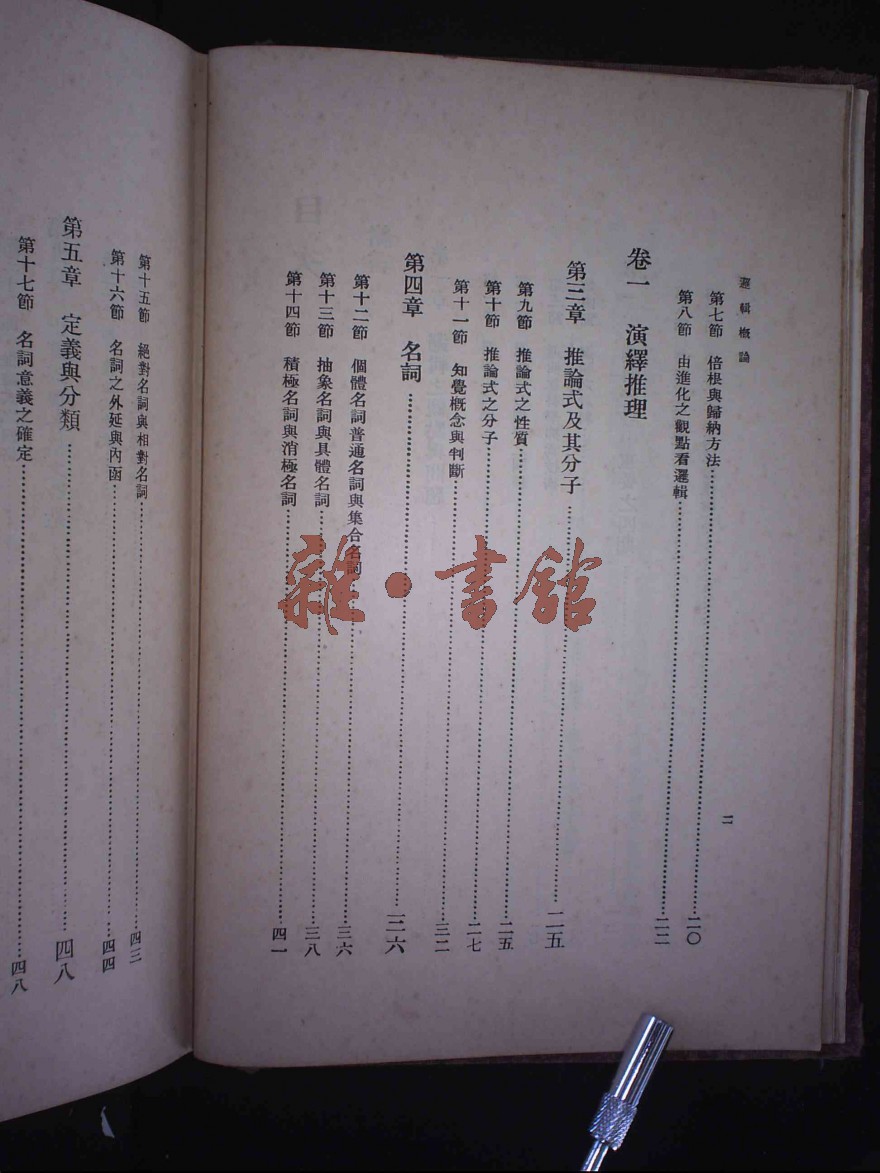 邏輯概論
二
第七節 倍根與歸納方法……二〇
第八節 由進化之觀點看邏輯……二二
卷一 演繹推理
第三章 推論式及其分子……二五
第九節 推論式之性質……二五
第十節 推論式之分子……二七
第十一節 知覺概念與判斷……三二
第四章 名詞……三六
第十二節 個體名詞普通名詞與集合名詞……三六
第十三節 抽象名詞與具體名詞……三八
第十四節 積極名詞與消極名詞……四一
第十五節 絕對名詞與相對名詞……四三
第十六節 名詞之外延與內函……四四
第五章 定義與分類……四八
第十七節 名詞意義之確定……四八
雜·書館